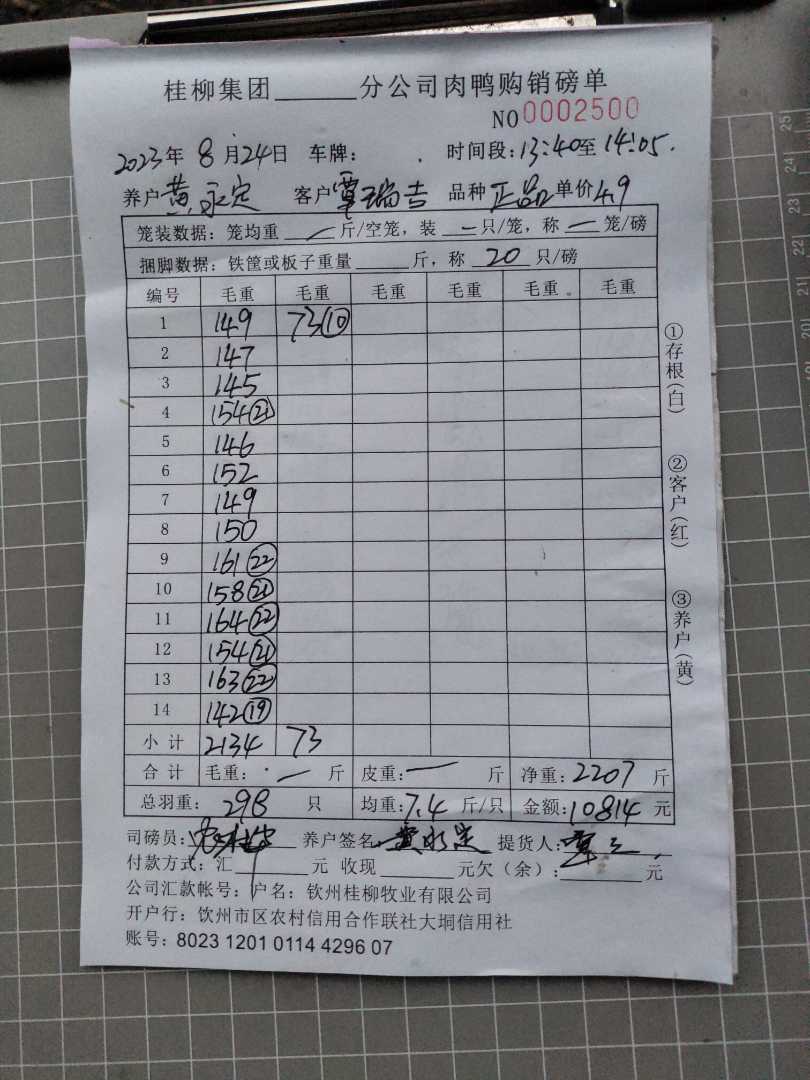 桂柳集团______分公司肉鸭购销磅单
NO 0002500
2023年 8月24日 车牌: 时间段:13:40至14:05.
养户黄永定 客户覃瑞吉 品种正品 单价4.9
笼装数据: 笼均重 / 斤/空笼, 装 一 只/笼, 称 一 笼/磅
捆脚数据: 铁筐或板子重量____斤, 称 20 只/磅
编号 毛重 毛重 毛重 毛重 毛重 毛重
1 149 73⑩
2 147
3 145
4 154㉑
5 146
6 152
7 149
8 150
9 161㉒
10 158㉑
11 164㉒
12 154㉑
13 163㉒
14 142⑲
小计 2134 73
合计 毛重: 一 斤 皮重: 一 斤 净重: 2207 斤
总羽重: 298 只 均重: 7.4 斤/只 金额: 10814 元
司磅员: 养户签名 黄永定 提货人: 覃
付款方式: 汇______元 收现______元欠（余）:______元
公司汇款帐号: 户名: 钦州桂柳牧业有限公司
开户行: 钦州市区农村信用合作联社大垌信用社
账号: 8023 1201 0114 4296 07
①存根(白)
②客户(红)
③养户(黄)
25
24
22
21